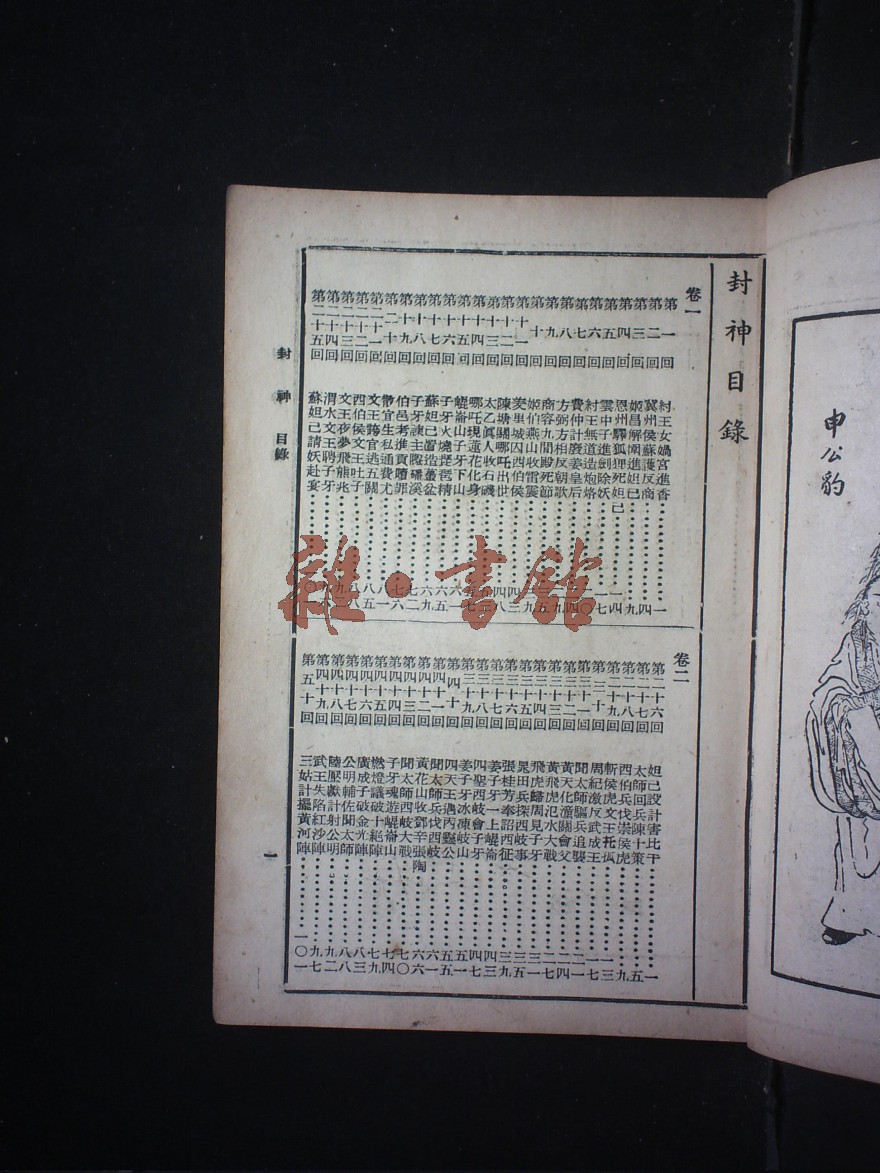 封神目錄
卷一
第一回 紂王女媧宮進香 一
第二回 冀州侯蘇護反商 四
第三回 姬昌解圍進妲己 九
第四回 恩州驛狐狸死妲己 一四
第五回 雲中子進劍除妖 一七
第六回 紂王無道造炮烙
第七回 費仲計廢姜皇后
第八回 方弼方相反朝歌
第九回 商容九間殿死節
第十回 姬伯燕山收雷震
第十一回 羑里城囚西伯侯 四三
第十二回 陳塘關哪吒出世 四八
第十三回 太乙眞人收石磯
第十四回 哪吒現蓮花化身
第十五回 崐崙山子牙下山
第十六回 子牙火燒琵琶精 六五
第十七回 蘇妲己置造蠆盆 六九
第十八回 子牙諫主隱磻溪 七二
第十九回 伯邑考進貢贖罪 七六
第二十回 散宜生私通費尤 八一
第二十一回 文王誇官逃五關 八五
第二十二回 西伯侯文王吐子 八八
第二十三回 文王夜夢飛熊兆
第二十四回 渭水文王聘子牙
第二十五回 蘇妲己請妖赴宴
卷二
第二十六回 妲己設計害比干 一
第二十七回 太師回兵陳十策 五
第二十八回 西伯兵伐崇侯虎 九
第二十九回 斬侯虎文王托孤 一三
第三十回 周紀激反武成王 一七
第三十一回 聞太師驅兵追襲 二一
第三十二回 黃天化潼關會父 二四
第三十三回 黃飛虎泗水大戰 二七
第三十四回 飛虎歸周見子牙 三一
第三十五回 晁田兵探西岐事 三五
第三十六回 張桂芳奉詔西征 三九
第三十七回 姜子牙一上崐崙 四三
第三十八回 四聖西岐會子牙 四七
第三十九回 姜子牙冰凍岐山 五一
第四十回 四天王遇丙靈公 五五
第四十一回 聞太師兵伐西岐 六一
第四十二回 黃花山收鄧辛張陶 六六
第四十三回 聞太師西岐大戰 七〇
第四十四回 子牙魂遊崐崙山 七四
第四十五回 燃燈議破十絕陣 七九
第四十六回 廣成子破金光陣 八三
第四十七回 公明輔佐聞太師 八八
第四十八回 陸壓獻計射公明 九二
第四十九回 武王失陷紅沙陣 九七
第五十回 三姑計擺黃河陣 一〇一
封神 目錄
一
申公豹
雜·書館